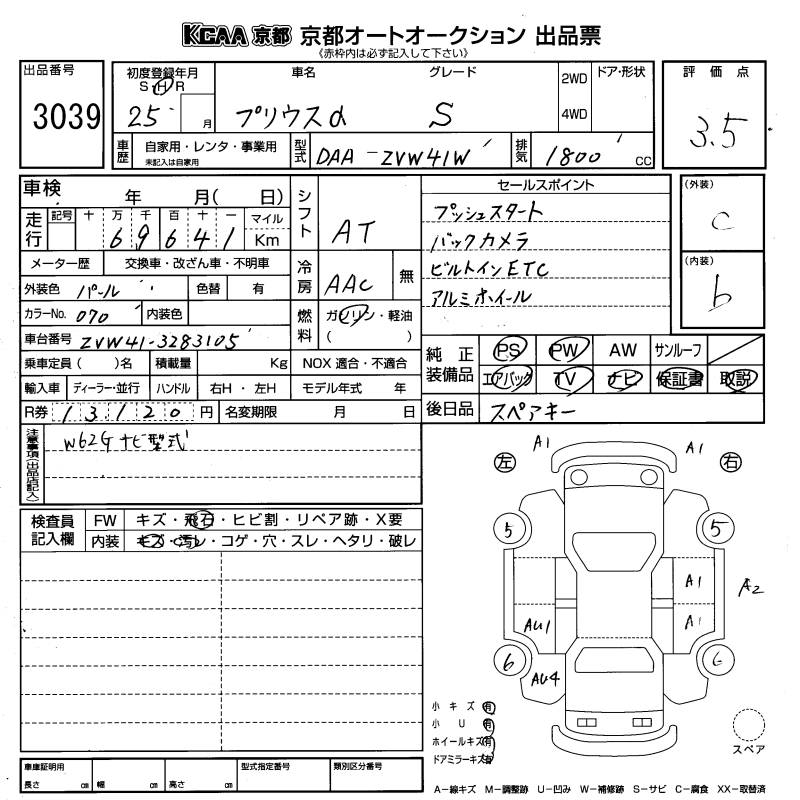 KCAA 京都 京都オートオークション 出品票
《赤枠内は必ず記入して下さい》
出品番号
3039
初度登録年月
S H R
25 月
車名
プリウスα
グレード
S
2WD
4WD
ドア・形状
評価点
3.5
車歴
自家用・レンタ・事業用
未記入は自家用
型式
DAA-ZVW41W
排気
1800 cc
車検 年 月( 日)
走行
記号 十 万 千 百 十 一 マイル
6 9 6 4 1 Km
メーター歴 交換車・改ざん車・不明車
外装色 パール 色替 有
カラーNo. 070 内装色
車台番号 ZVW41-3283105
乗車定員 ( )名 積載量 Kg NOX 適合・不適合
輸入車 ディーラー・並行 ハンドル 右H ・ 左H モデル年式 年
R券 13120 円 名変期限 月 日
シフト
AT
冷房
AAC
無
燃料
ガソリン・軽油
( )
セールスポイント
プッシュスタート
バックカメラ
ビルトインETC
アルミホイール
(外装)
C
(内装)
b
純正装備品
PS PW AW サンルーフ
エアバック TV ナビ 保証書 取説
後日品 スペアキー
注意事項(出品店記入)
W62G ナビ型式
検査員記入欄
FW キズ・飛石・ヒビ割・リペア跡・X要
内装 キズ・汚レ・コゲ・穴・スレ・ヘタリ・破レ
左
右
A1
A1
5
5
A1
A2
AU1
A1
6
6
AU4
小キズ 有
小U 有
ホイールキズ 有
ドアミラーキズ 有
スペア
車庫証明用
長さ cm 幅 cm 高さ cm
型式指定番号
類別区分番号
A-線キズ M-調整跡 U-凹み W-補修跡 S-サビ C-腐食 XX-取替済